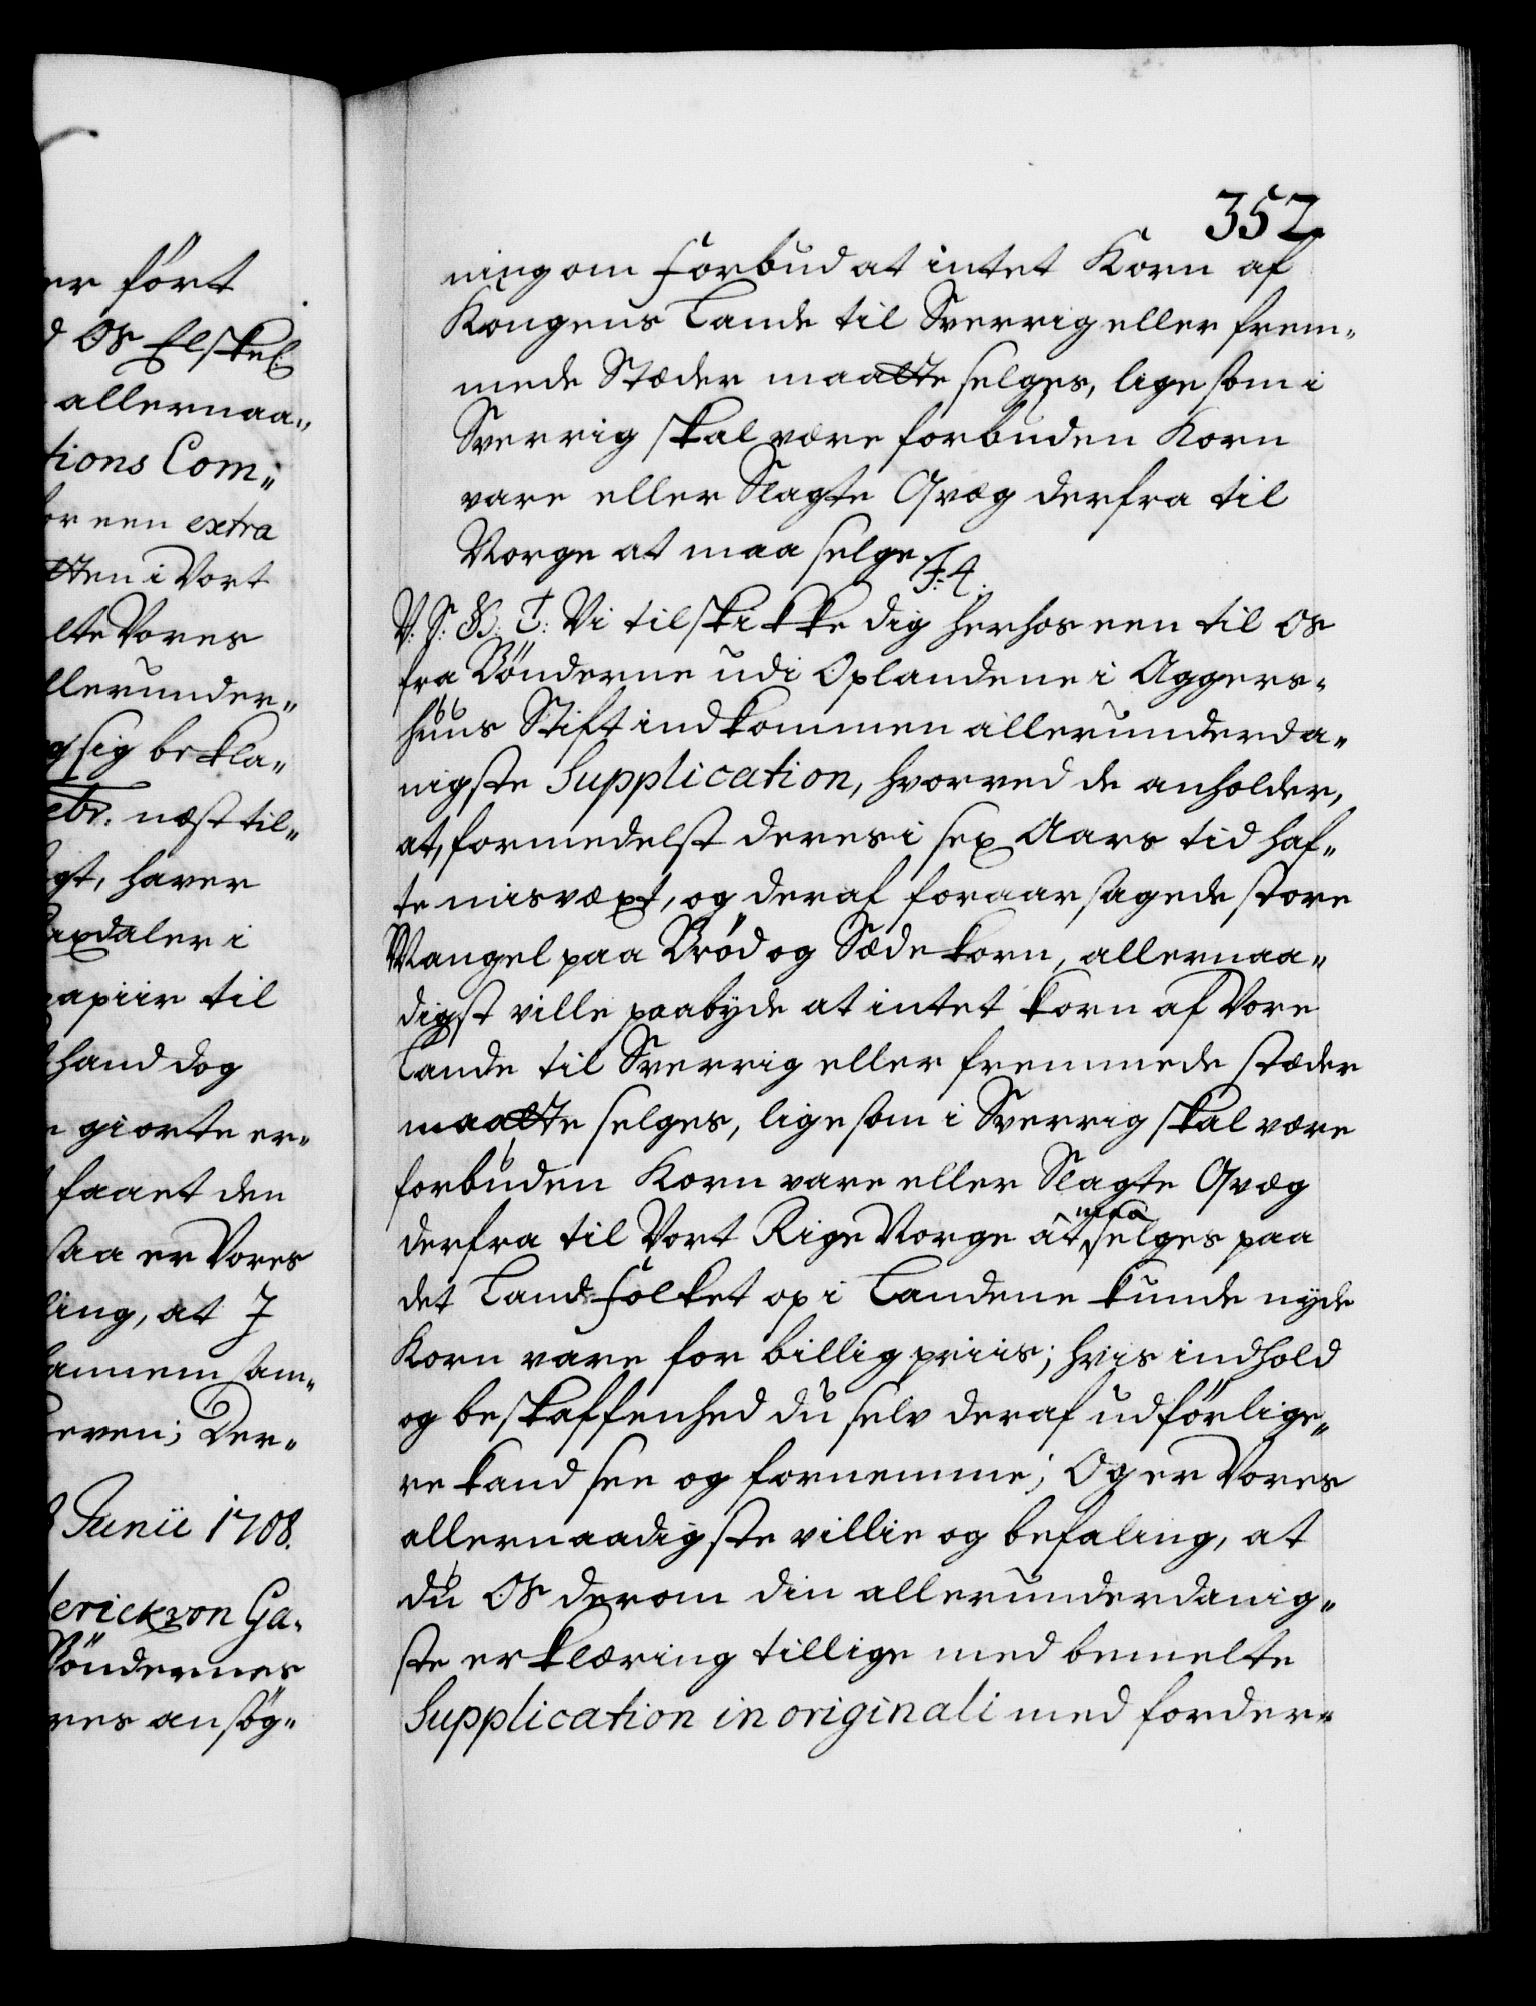 er fört
d Os Elskel:
allernaa„
tions Com„
or een extra
tten i Vort
lte Vores
llerunder„
g sig bekla„
ebr: næst til„
gt, haver
axdaler i
papiir til
hand dog
giorte er„
faaet den
saa er Vores
ling, at I
annem sam„
even; Der„
Junii 1708.
erick von Ga„
Böndernes
res ansög„
352
ning om forbud at intet Korn af
Kongens Lande til Sverrig eller frem„
mede Stæder maatte selges, lige som i
Sverrig skal være forbuden Korn
vare eller Slagte Qvæg derfra til
Norge at maa selge.
F: 4.
V: S: G: T: Vi tilskikke dig herhos een til Os
fra Bönderne udi Oplandene i Aggers„
huus Stift indkommen allerunderda„
nigste Supplication, hvorved de anholder,
at, formedelst deres i sex Aars tid haf„
te misvæxt, og deraf foraarsagede store
Mangel paa Bröd og Sæde korn, allernaa„
digst ville paabyde at intet korn af Vore
Lande til Sverrig eller fremmede stæder
maatte selges, lige som i Sverrig skal være
forbuden Korn vare eller Slagte Qvæg
derfra til Vort Rige Norge at maa selges paa
det Land folket op i Landene kunde nyde
Korn vare for billig priis; hvis indhold
og beskaffenhed du selv deraf udförlige„
re kand see og fornemme; Og er Vores
allernaadigste villie og befaling, at
du Os derom din allerunderdanig„
ste erklæring tillige med bemelte
Supplication in originali med forder„